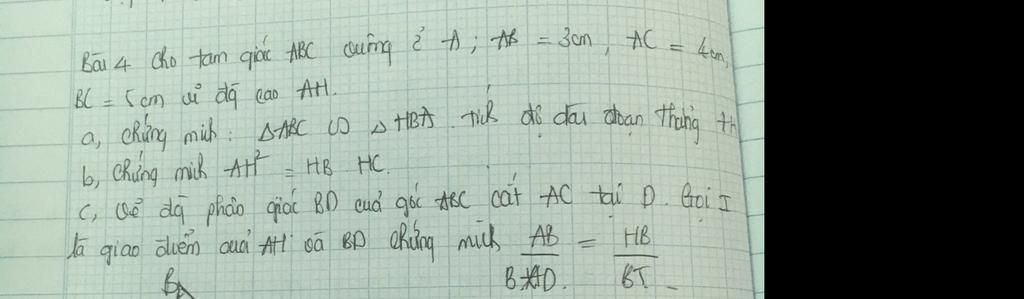 Bài 4 Cho tam giác ABC vuông ở A; AB = 3cm, AC = 4cm,
BC = 5cm vẽ đg cao AH.
a, chứng mih: ΔABC ∽ ΔHBA. tính độ dài đoạn thẳng AH
b, Chứng mih AH² = HB HC.
c, Vẽ đg phân giác BD của góc ABC cắt AC tại D. Gọi I
là giao điểm của AH và BD chứng mih AB/BD = HB/BI